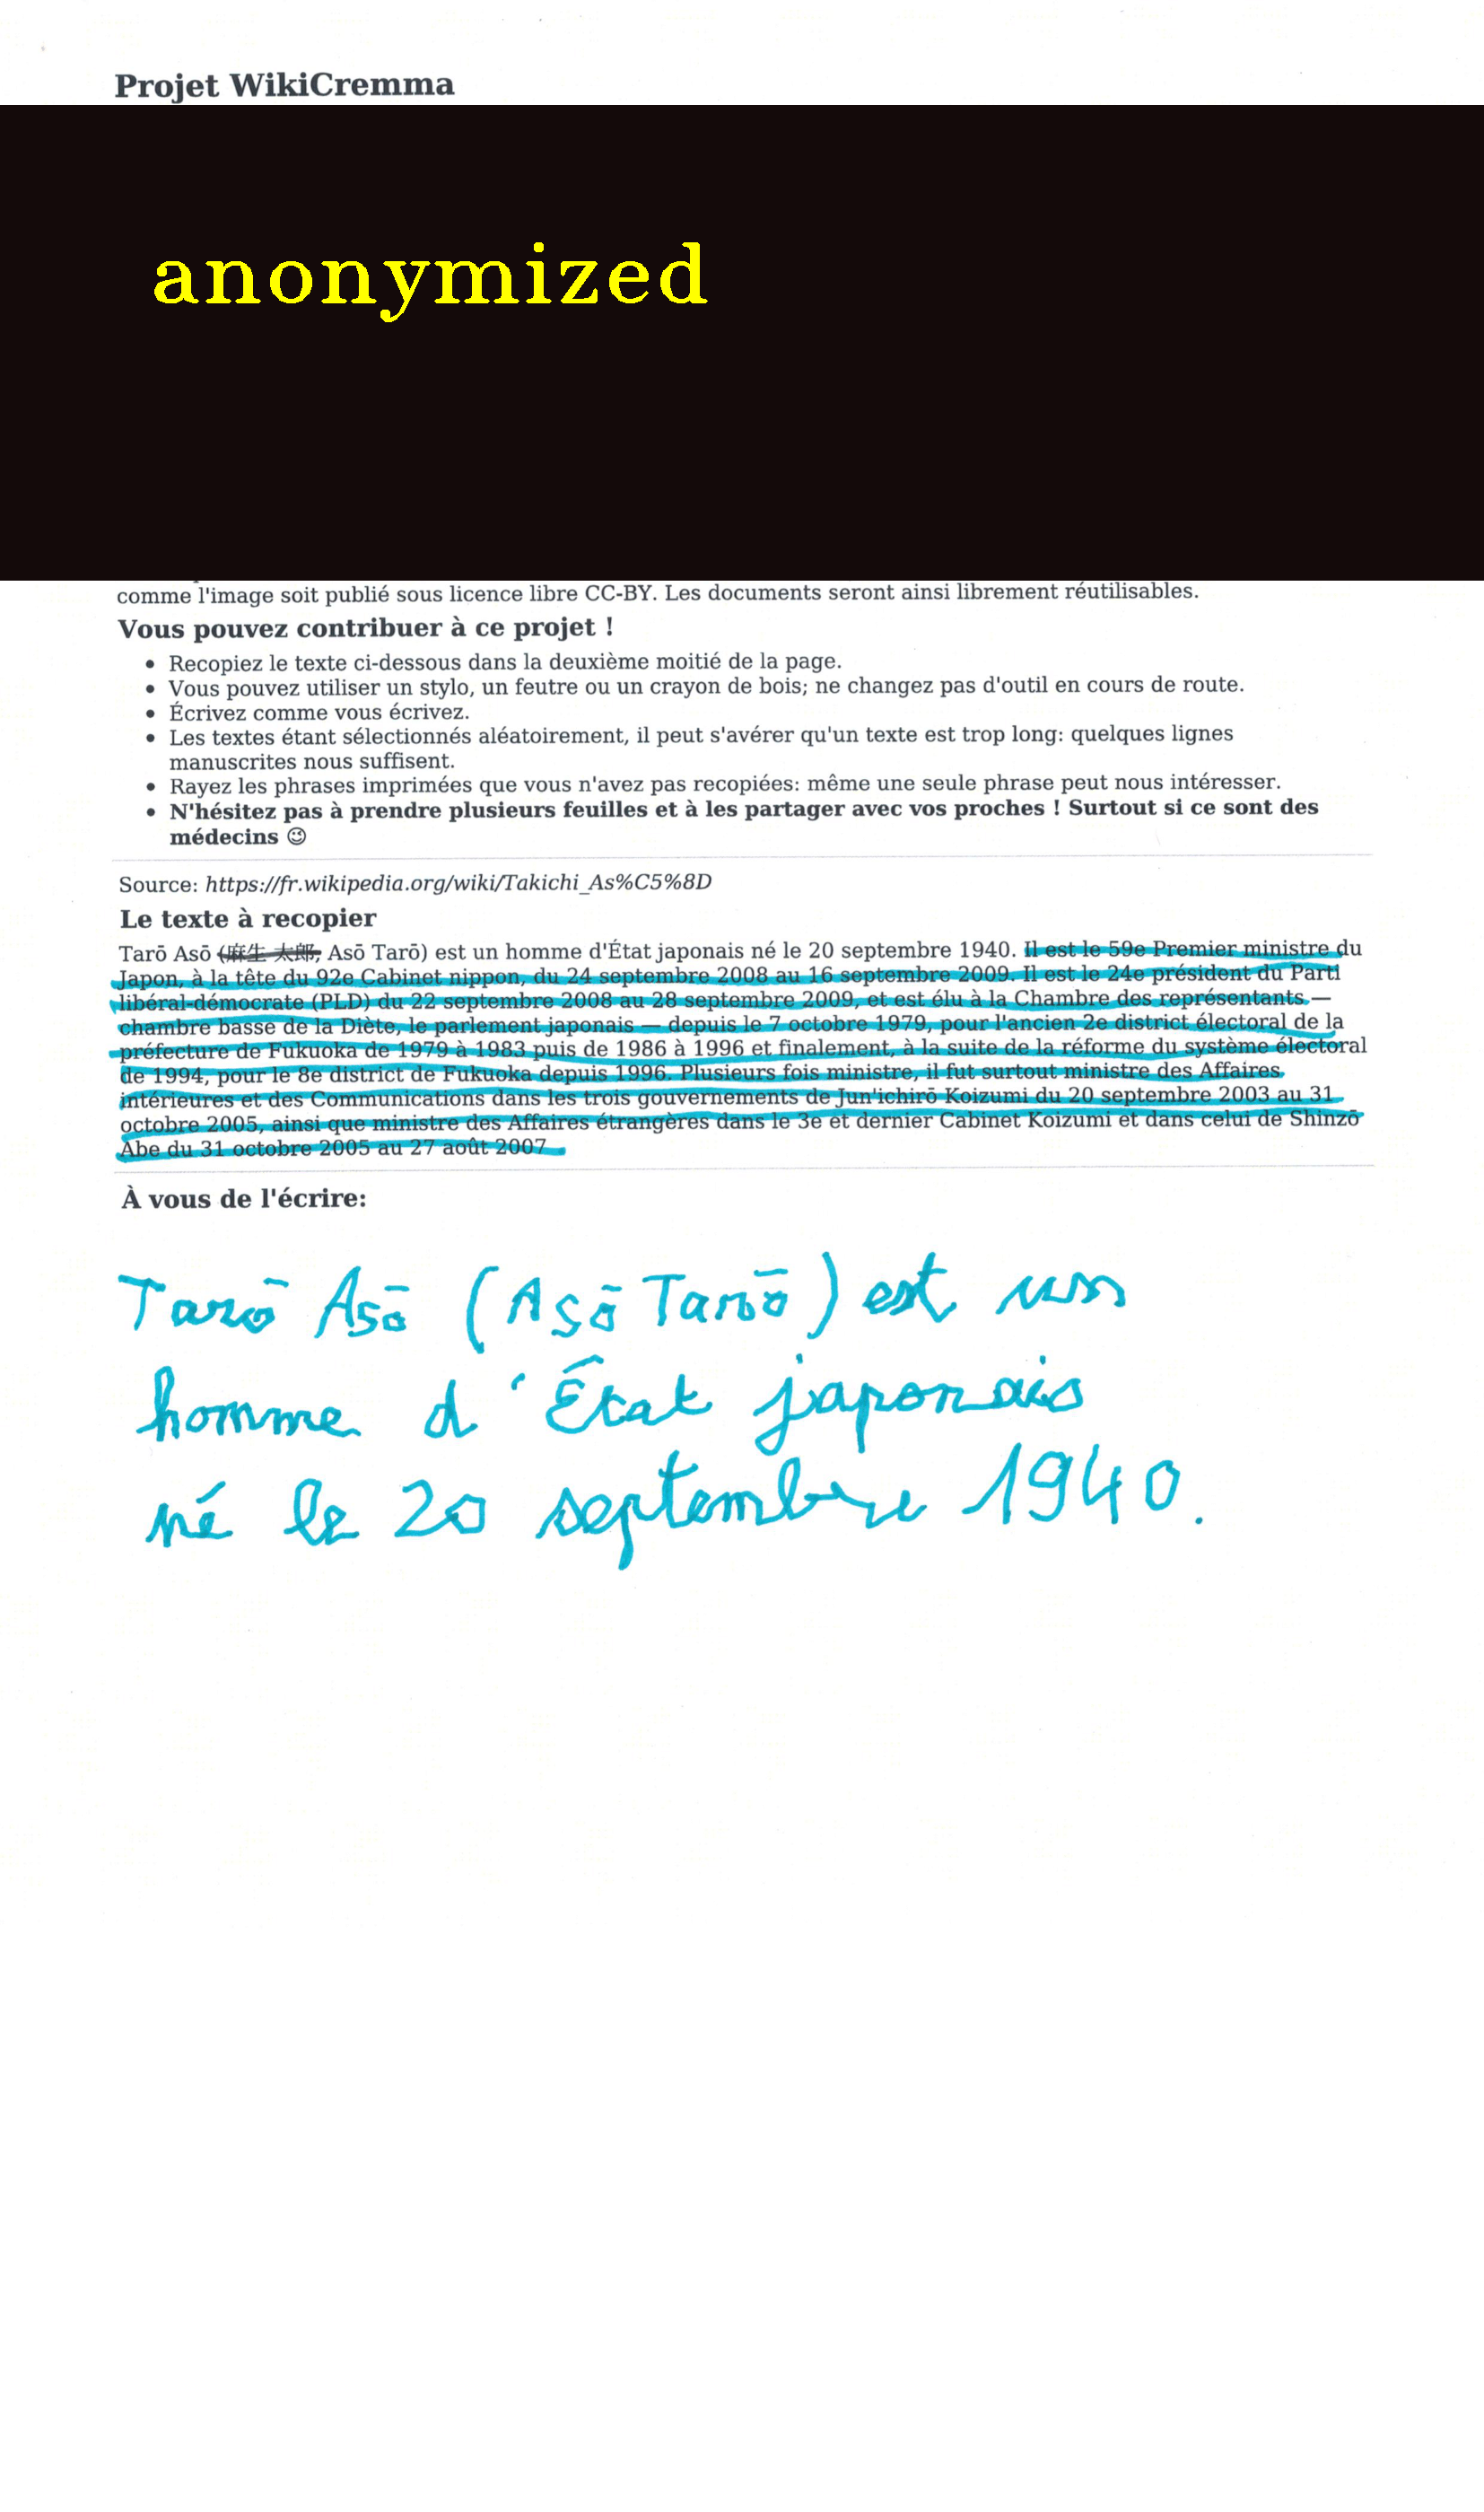 Projet WikiCremma
anonymized
comme l'image soit publié sous licence libre CC-BY. Les documents seront ainsi librement réutilisables.
Vous pouvez contribuer à ce projet !
• Recopiez le texte ci-dessous dans la deuxième moitié de la page.
• Vous pouvez utiliser un stylo, un feutre ou un crayon de bois; ne changez pas d'outil en cours de route.
• Écrivez comme vous écrivez.
• Les textes étant sélectionnés aléatoirement, il peut s'avérer qu'un texte est trop long: quelques lignes
manuscrites nous suffisent.
• Rayez les phrases imprimées que vous n'avez pas recopiées: même une seule phrase peut nous intéresser.
• N'hésitez pas à prendre plusieurs feuilles et à les partager avec vos proches ! Surtout si ce sont des
médecins 😉
Source: https://fr.wikipedia.org/wiki/Takichi_As%C5%8D
Le texte à recopier
Tarō Asō (麻生 太郎, Asō Tarō) est un homme d'État japonais né le 20 septembre 1940. Il est le 59e Premier ministre du
Japon, à la tête du 92e Cabinet nippon, du 24 septembre 2008 au 16 septembre 2009. Il est le 24e président du Parti
libéral-démocrate (PLD) du 22 septembre 2008 au 28 septembre 2009, et est élu à la Chambre des représentants —
chambre basse de la Diète, le parlement japonais — depuis le 7 octobre 1979, pour l'ancien 2e district électoral de la
préfecture de Fukuoka de 1979 à 1983 puis de 1986 à 1996 et finalement, à la suite de la réforme du système électoral
de 1994, pour le 8e district de Fukuoka depuis 1996. Plusieurs fois ministre, il fut surtout ministre des Affaires
intérieures et des Communications dans les trois gouvernements de Jun'ichirō Koizumi du 20 septembre 2003 au 31
octobre 2005, ainsi que ministre des Affaires étrangères dans le 3e et dernier Cabinet Koizumi et dans celui de Shinzō
Abe du 31 octobre 2005 au 27 août 2007.
À vous de l'écrire:
Tarō Asō (Asō Tarō) est un
homme d'État japonais
né le 20 septembre 1940.